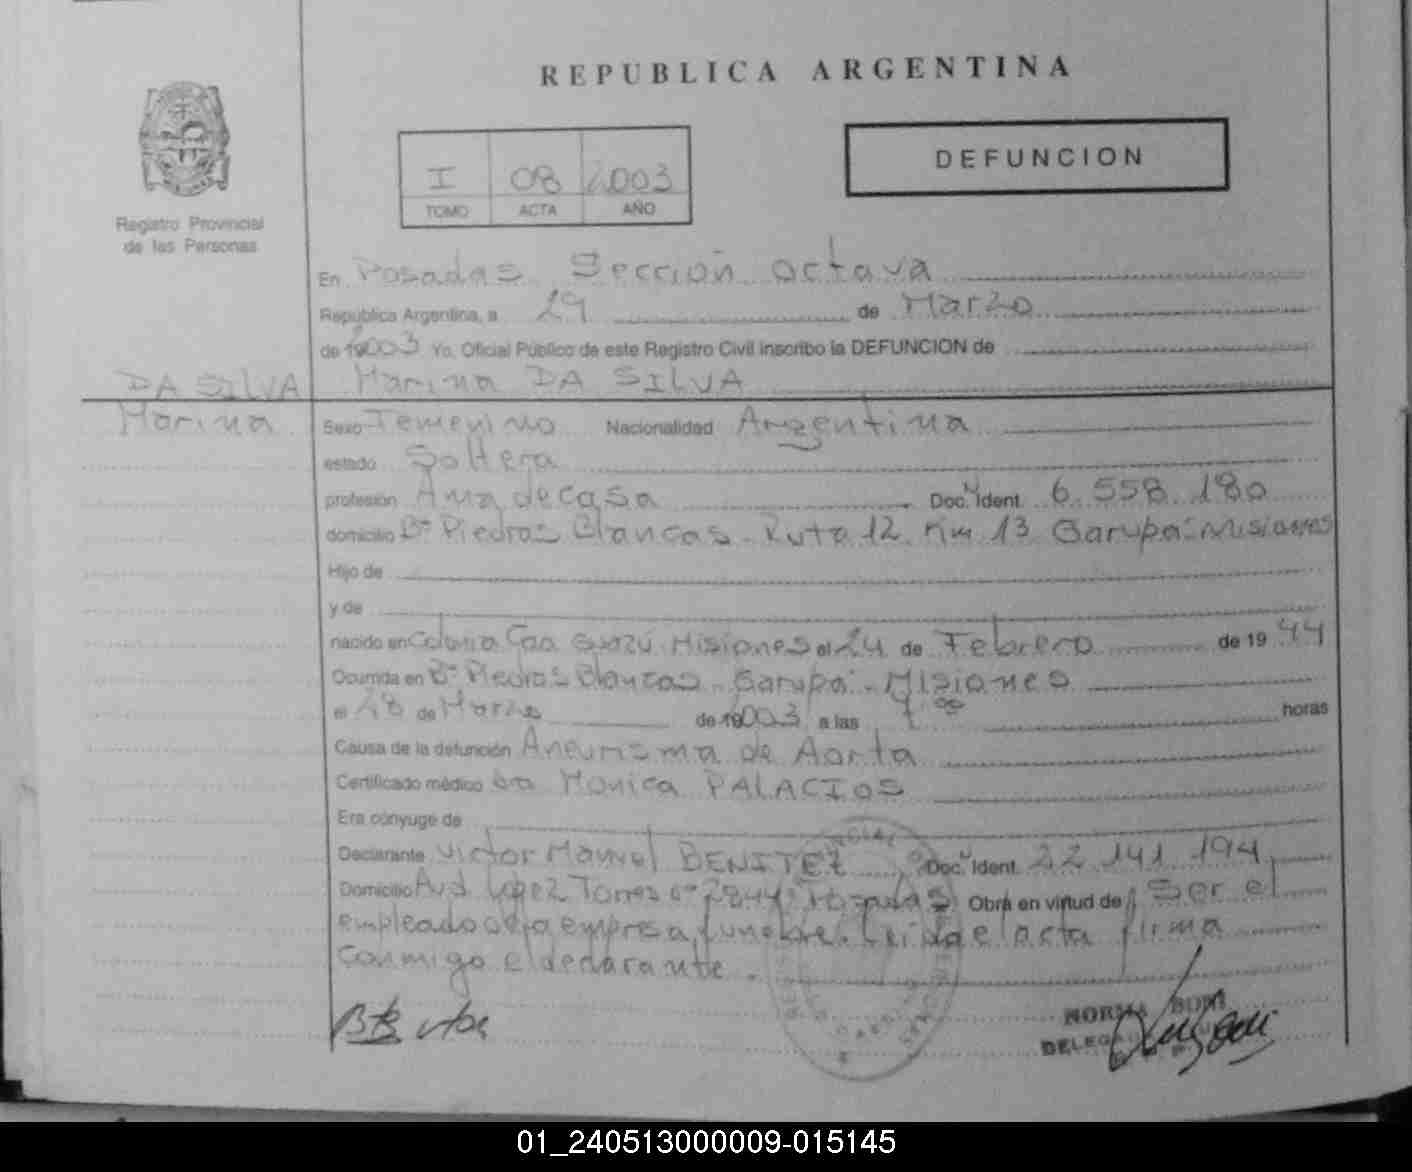 REPUBLICA ARGENTINA
DEFUNCION
I 08 2003
TOMO ACTA AÑO
Registro Provincial
de las Personas
En Posadas Sección octava
Republica Argentina, a 29 de Marzo
de 19 2003 Yo, Oficial Público de este Registro Civil inscribo la DEFUNCION de
DA SILVA Marina DA SILVA
Marina Sexo Femenino Nacionalidad Argentina
estado Soltera
profesión Ama de casa Doc. N Ident. 6.558.180
domicilio Bº Piedras Blancas - Ruta 12 Km 13 Garupá-Misiones
Hijo de
y de
nacido en Colonia Caa Guazú Misiones el 24 de Febrero de 19 44
Ocurrida en Bº Piedras Blancas - Garupá - Misiones
el 28 de Marzo de 19 2003 a las 7 00 horas
Causa de la defunción Aneurisma de Aorta
Certificado médico Dra Monica PALACIOS
Era cónyuge de
Declarante Victor Manuel BENITEZ Doc. N Ident. 22.141.194
Domicilio Avd. López Torres nº 2844 Posadas Obra en virtud de Ser el
empleado de la empresa fúnebre. Leida el acta firma
conmigo el declarante.
NORMA
01_240513000009-015145